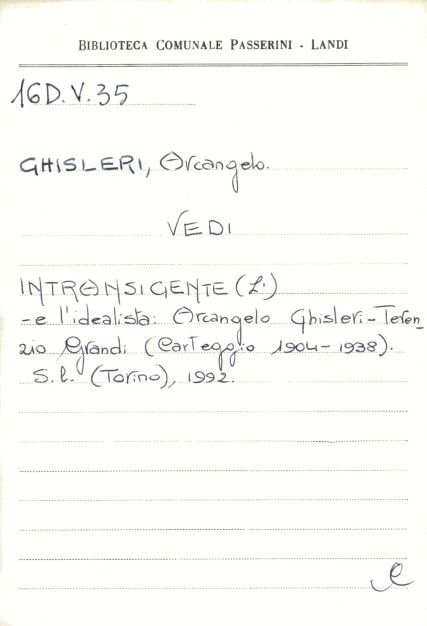 BIBLIOTECA COMUNALE PASSERINI - LANDI
16D.V.35
GHISLERI, Arcangelo.
VEDI
INTRANSIGENTE (L')
- e l'idealista: Arcangelo Ghisleri - Teren
zio Grandi (Carteggio 1904-1938).
S.l. (Torino), 1992.